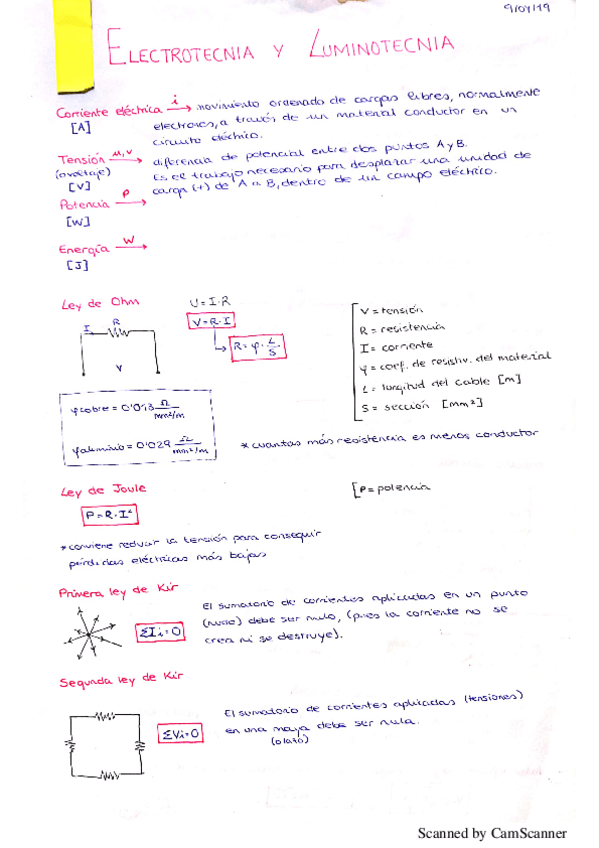 9/04/19
ELECTROTECNIA Y LUMINOTECNIA
Corriente eléctrica i → movimiento ordenado de cargas libres, normalmente
[A] electrones, a través de un material conductor en un
circuito eléctrico.
Tensión u,v → diferencia de potencial entre dos puntos A y B.
(o voltaje) Es el trabajo necesario para desplazar una unidad de
[V] carga (+) de A a B, dentro de un campo eléctrico.
Potencia P →
[W]
Energía W →
[J]
Ley de Ohm U = I·R
V = R·I
R = φ · L/S
I R
V
V = tensión
R = resistencia
I = corriente
φ = coef. de resistiv. del material
L = longitud del cable [m]
S = sección [mm²]
φcobre = 0'018 Ω/mm²/m
φaluminio = 0'029 Ω/mm²/m
* cuantas más resistencia es menos conductor
Ley de Joule [P = potencia
P = R·I²
* conviene reducir la tensión para conseguir
pérdidas eléctricas más bajas
Primera ley de Kir
El sumatorio de corrientes aplicadas en un punto
(nudo) debe ser nulo, (pues la corriente no se
crea ni se destruye).
ΣIi=0
Segunda ley de Kir
El sumatorio de corrientes aplicadas (tensiones)
en una maya debe ser nula.
(o lazo)
ΣVi=0
Scanned by CamScanner